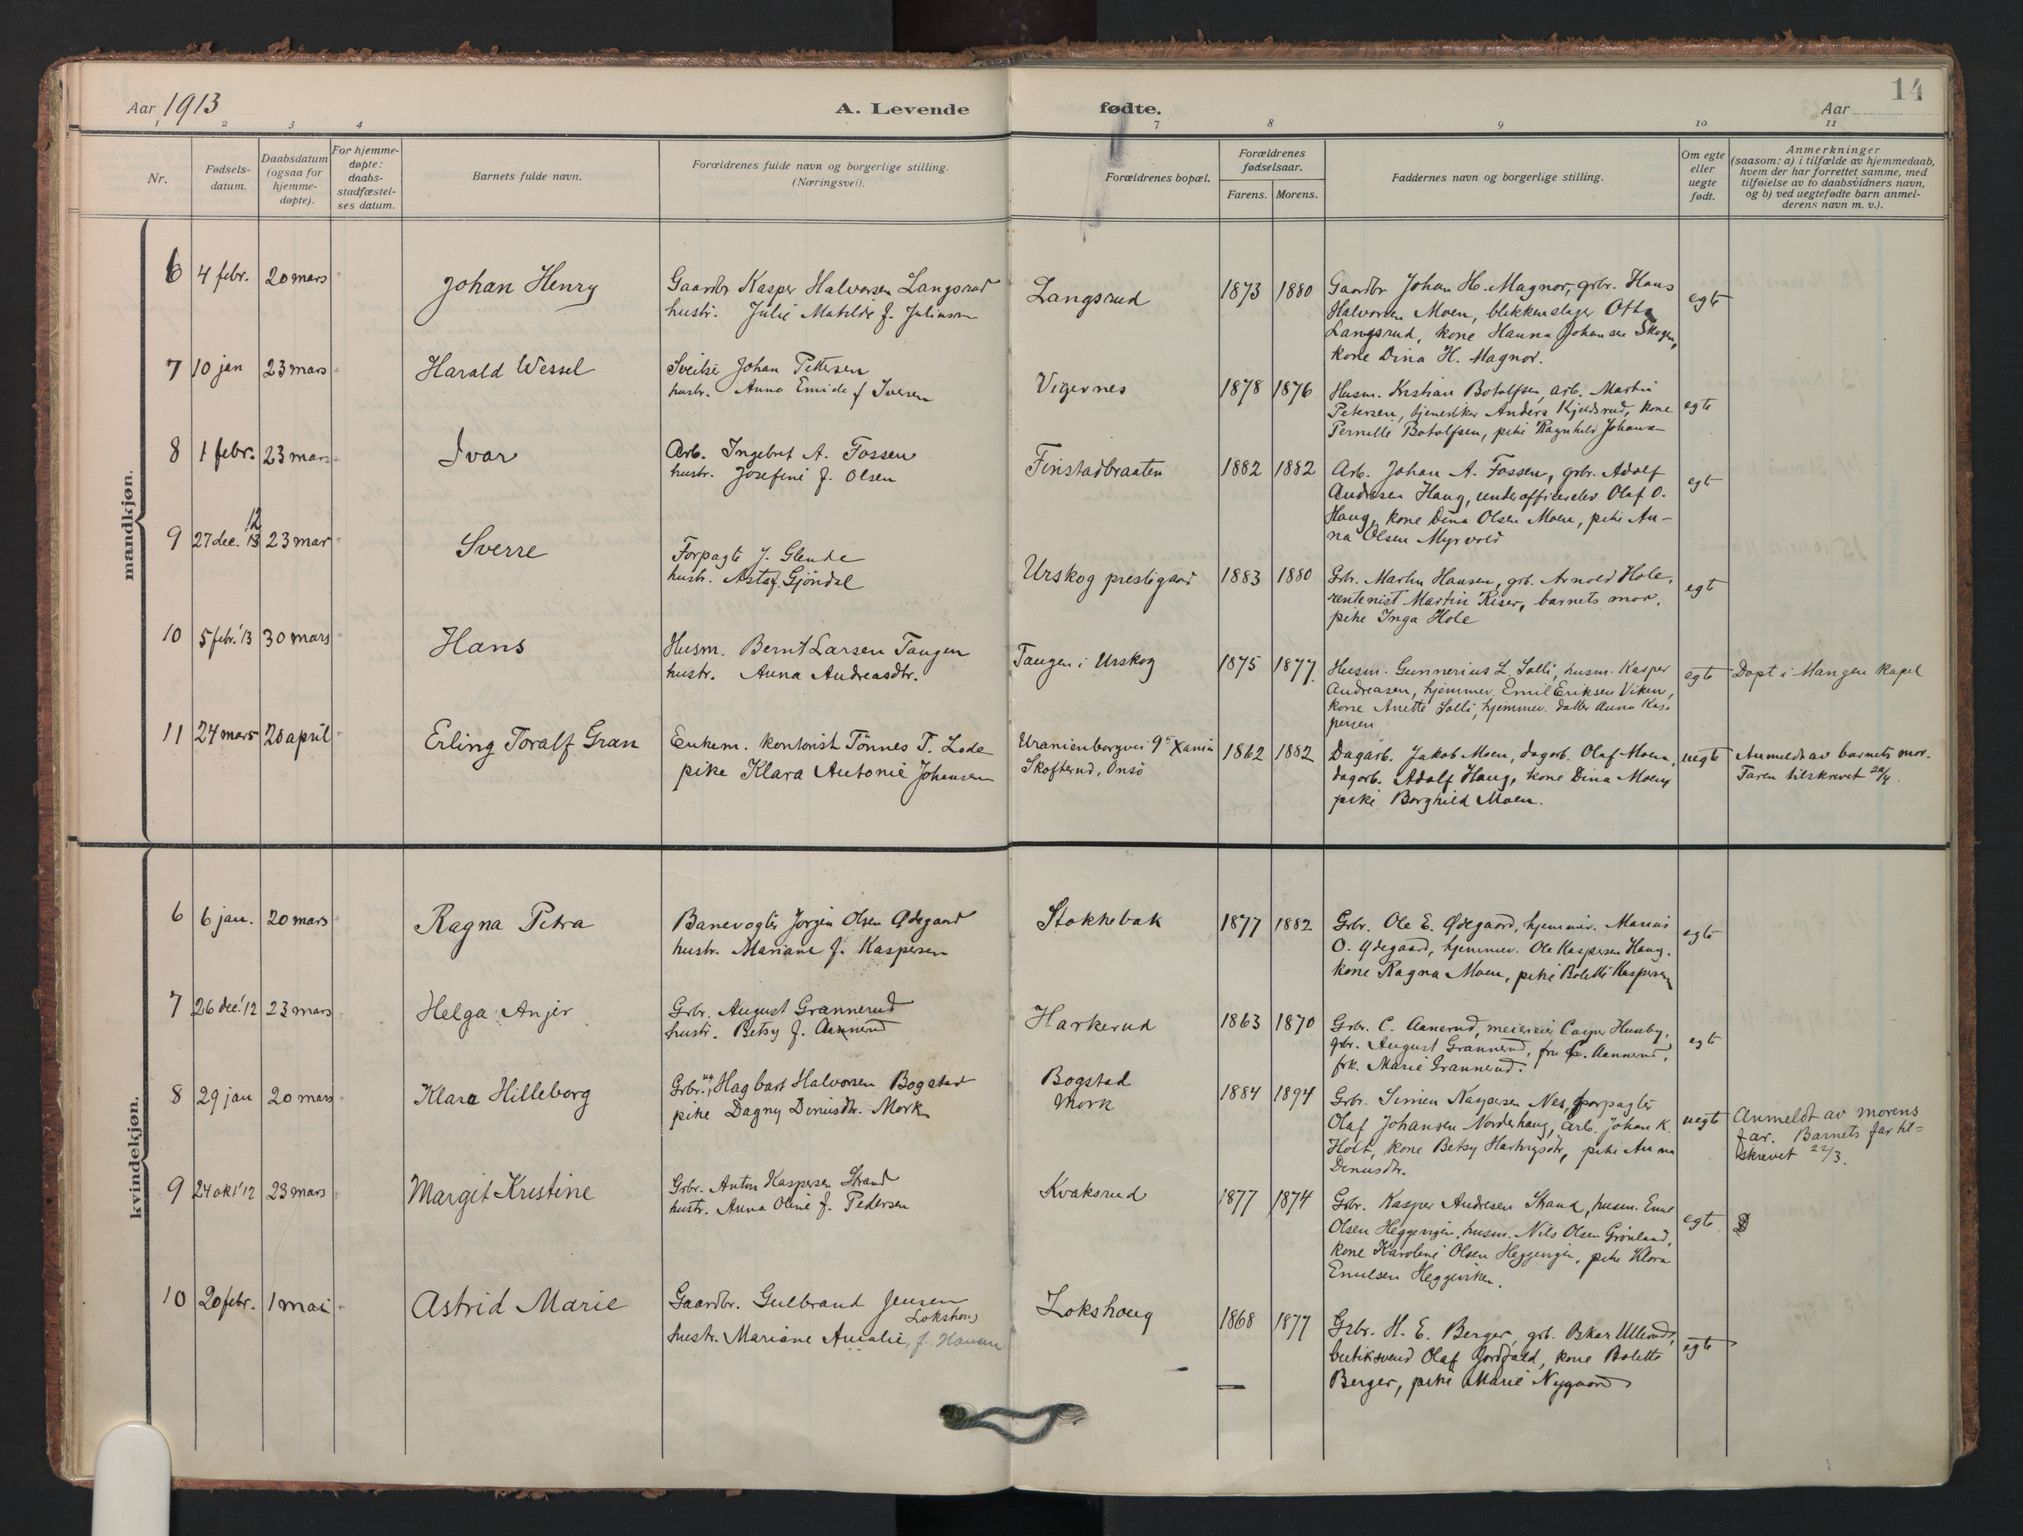 Aar 1913
A. Levende fødte.
Aar
14
1 2 3 4 7 8 9 10 11
Nr.
Fødsels-
datum.
Daabsdatum
(ogsaa for
hjemme-
døpte).
For hjemme-
døpte:
daabs-
stadfæstel-
ses datum.
Barnets fulde navn.
Forældrenes fulde navn og borgerlige stilling.
(Næringsvei).
Forældrenes bopæl.
Forældrenes
fødselsaar.
Farens. Morens.
Faddernes navn og borgerlige stilling.
Om egte
eller
uegte
født.
Anmerkninger
(saasom: a) i tilfælde av hjemmedaab,
hvem der har forrettet samme, med
tilføielse av to daabsvidners navn,
og b) ved uegtefødte barn anmel-
derens navn m. v.).
mandkjøn.
6 4 febr. 20 mars Johan Henry
Gaardbr Kasper Halvorsen Langsrud
hustr. Julie Matilde f. Juliussen
Langsrud 1873 1880
Gaardbr Johan H. Magnor, grbr. Hans
Halvorsen Moen, blikkenslager Otto
Langsrud, kone Hanna Johansen Skogen,
kone Dina H. Magnor.
egte
7 10 jan 23 mars Harald Wessel
Johan Pettersen
hustr. Anna f Iversen
Vigernes 1878 1876
Husm. Kristian Botolfsen, arb. Martin
Petersen, Anders Kjeldsrud, kone
Pernille Botolfsen, pike Ragnhild Johansen
egte
8 1 febr. 23 mars Ivar
Arb. Ingebret A. Fossen
hustr. Josefine f. Olsen
Finstadbraaten 1882 1882
Arb. Johan A. Fossen, grbr. Adolf
Andresen Haug, underofficerelev Olaf O.
Haug, kone Dina Olsen Moen, pike An-
na Olsen Myrvold
egte
9 27 dec. 12 13 23 mar Sverre
Forpagter J. Glende
hustr. Asta f. Gjöndal
Urskog prestegaard 1883 1880
Grbr. Martin Hansen, grb. Arnold Hole,
rentenist Martin Riser, barnets mor,
pike Inga Hole
egte
10 5 febr. '13 30 mars Hans
Husm. Bernt Larsen Tangen
hustr. Anna Andreasdtr.
Tangen i Urskog 1875 1877
Husm. Gunnerius L. Solli, husm. Kasper
Andreasen, hjemmev. Emil Eriksen Viken,
kone Anette Solli, hjemmev. datter Anna Kas-
persen
egte
Døpt i Mangen kapel
11 24 mars 20 april Erling Toralf Gran
Enkem. kontorist Tönnes T. Lode
pike Klara Antonie Johansen
Uranienborgvei 9 Xania
Skofterud, Onsö
1862 1882
Dagarb. Jakob Moen, dagarb. Olaf Moen,
dagarb. Adolf Haug, kone Dina Moen,
pike Borghild Moen.
uegte
Anmeldt av barnets mor.
Faren tilskrevet 20/4.
kvindekjøn.
6 6 jan. 20 mars Ragna Petra
Banevogter Jørgen Olsen Ødegaard
hustr. Mariane f. Kaspersen
Stokkebak 1877 1882
Grbr. Ole E. Ødegaard, hjemmev. Marius
O. Ødegaard, hjemmev. Ole Kaspersen Haug,
kone Ragna Moen, pike Bolette Kaspersen
egte
7 26 dec. '12 23 mars Helga Anjer
Grbr. August Grannerud
hustr. Betsy f. Aannerud
Harkerud 1863 1870
Grbr. C. Aanerud, meieriejer Casper Huseby,
grbr. August Grannerud, fru C. Aannerud,
frk. Marie Grannerud.
egte
8 29 jan 20 mars Klara Hilleborg
Grbr. Hagbart Halvorsen Bogstad
pike Dagny Dinusdtr. Mork
Bogstad
Mork
1884 1894
Grbr. Simen Kaspersen Nes, forpagter
Olaf Johansen Norderhaug, arb. Johan K.
Holt, kone Betsy Hartvigsdtr, pike Anna
Dinusdtr.
uegte
Anmeldt av morens
far. Barnets far til-
skrevet 22/3.
9 24 okt '12 23 mars Margit Kristine
Grbr. Anton Kaspersen Strand
hustr. Anna Oline f. Pedersen
Kvaksrud 1877 1874
Grbr. Kasper Andresen Strand, husm. Emil
Olsen Heggevigen, husm. Nils Olsen Grönland,
kone Karoline Olsen Heggevigen, pike Klara
Emilsen Heggeviken.
egte
10 20 febr. 1 mai Astrid Marie
Gaardbr. Gulbrand Jensen
Lokshoug
hustr. Mariane Amalie f. Hansen
Lokshoug 1868 1877
Grbr. H. E. Berger, grb. Oskar Ullerud,
butiksvend Olaf Jordfald, kone Bolette
Berger, pike Marie Nygaard
egte